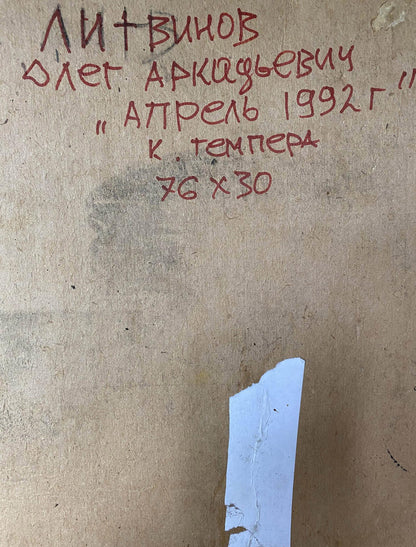 Литвинов
Олег Аркадьевич
„Апрель 1992 г"
к. темпера
76 x 30